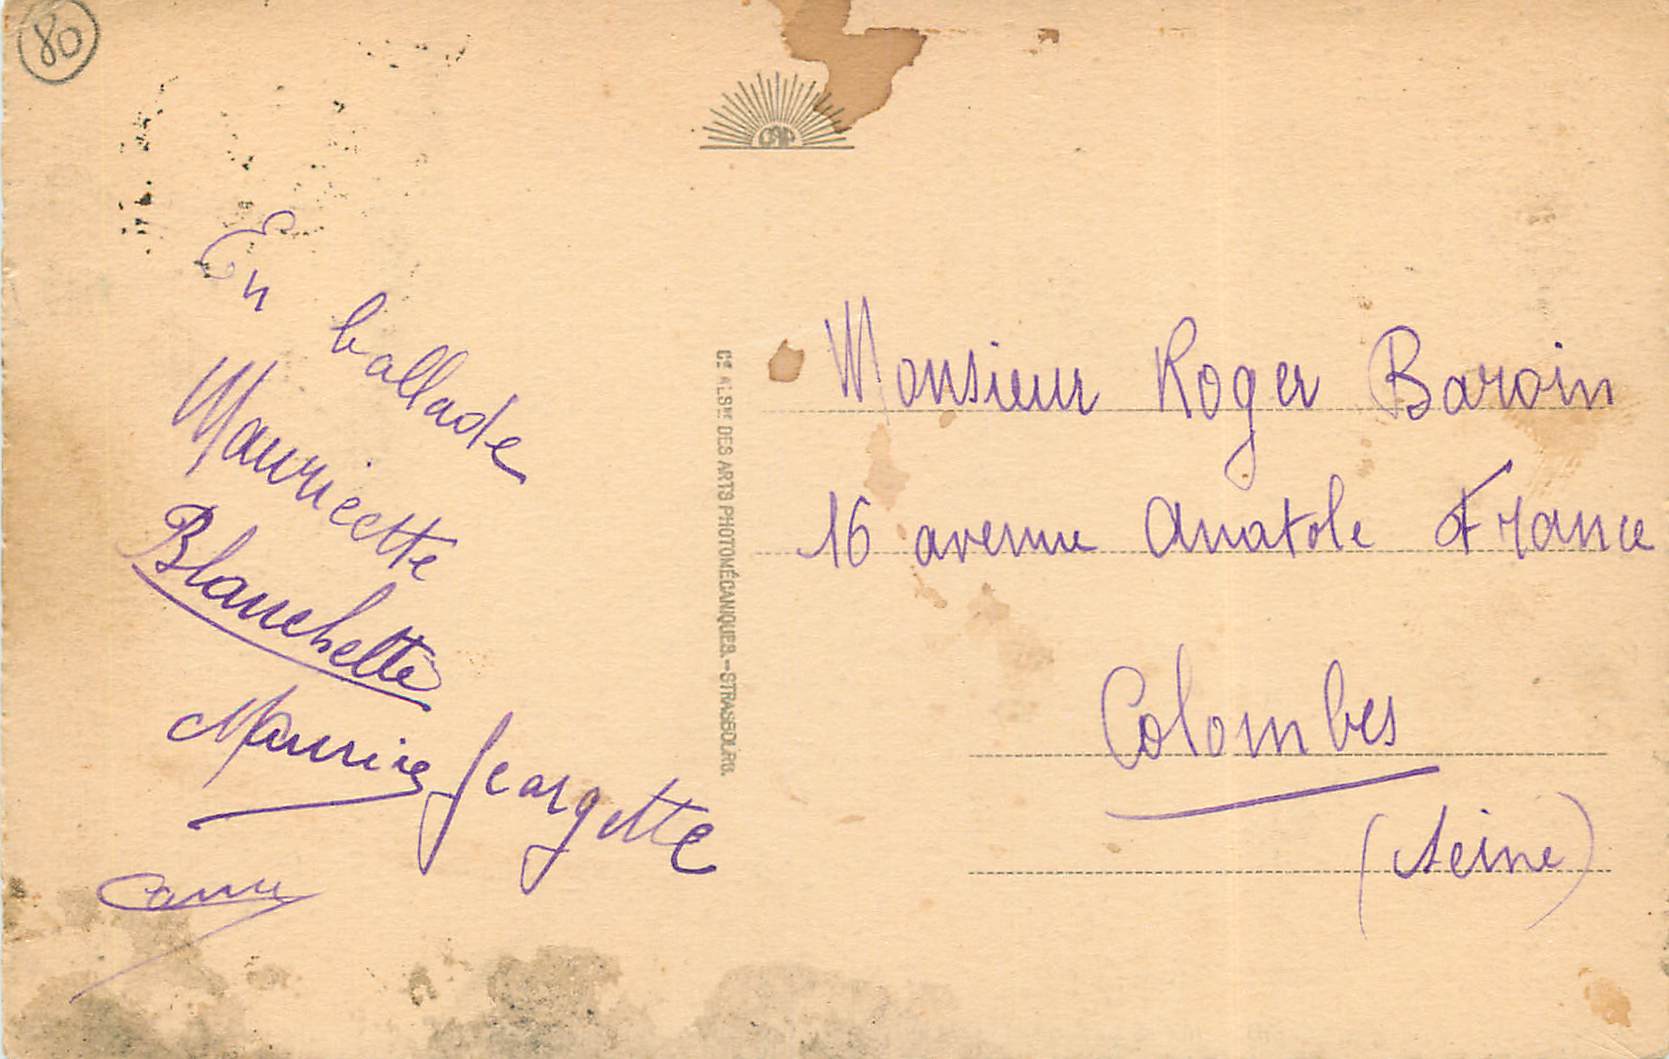 80
En ballade
Mauricette
Blanchette
Maurice Georgette
CAP
Cie ALSne DES ARTS PHOTOMÉCANIQUES.-STRASBOURG.
Monsieur Roger Baroin
16 avenue Anatole France
Colombes
(Seine)